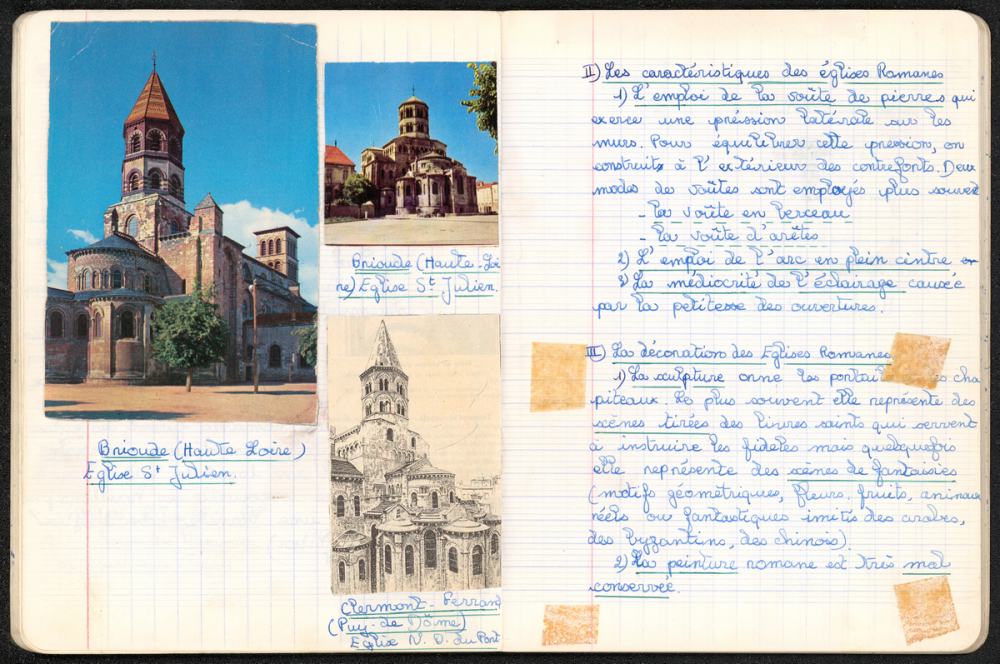 Brioude (Haute Loire)
Eglise St Julien.
Brioude (Haute-Loi
re) Eglise St Julien.
Clermont-Ferrand
(Puy-de Dôme)
Eglise N. D. du Port
II) Les caractéristiques des églises Romanes
1) L'emploi de la voûte de pierres qui
exerce une préssion latérale sur les
murs. Pour équilibrer cette pression, on
construits à l'extérieur des contreforts. Deux
modes de voûtes sont employés plus souvent
- la voûte en berceau
- la voûte d'arêtes
2) L'emploi de l'arc en plein cintre
La médiocrité de l'éclairage causée
par la petitesse des ouvertures.
III) La décoration des Eglises Romanes
1) La sculpture orne les portai cha
piteaux. Le plus souvent elle représente des
scènes tirées des livres saints qui servent
à instruire les fidèles mais quelquefois
elle représente des scènes de fantaisies
(motifs géométriques, fleurs, fruits, animaux
réels ou fantastiques imités des arabes,
des byzantins, des chinois).
2) La peinture romane est très mal
conservée.